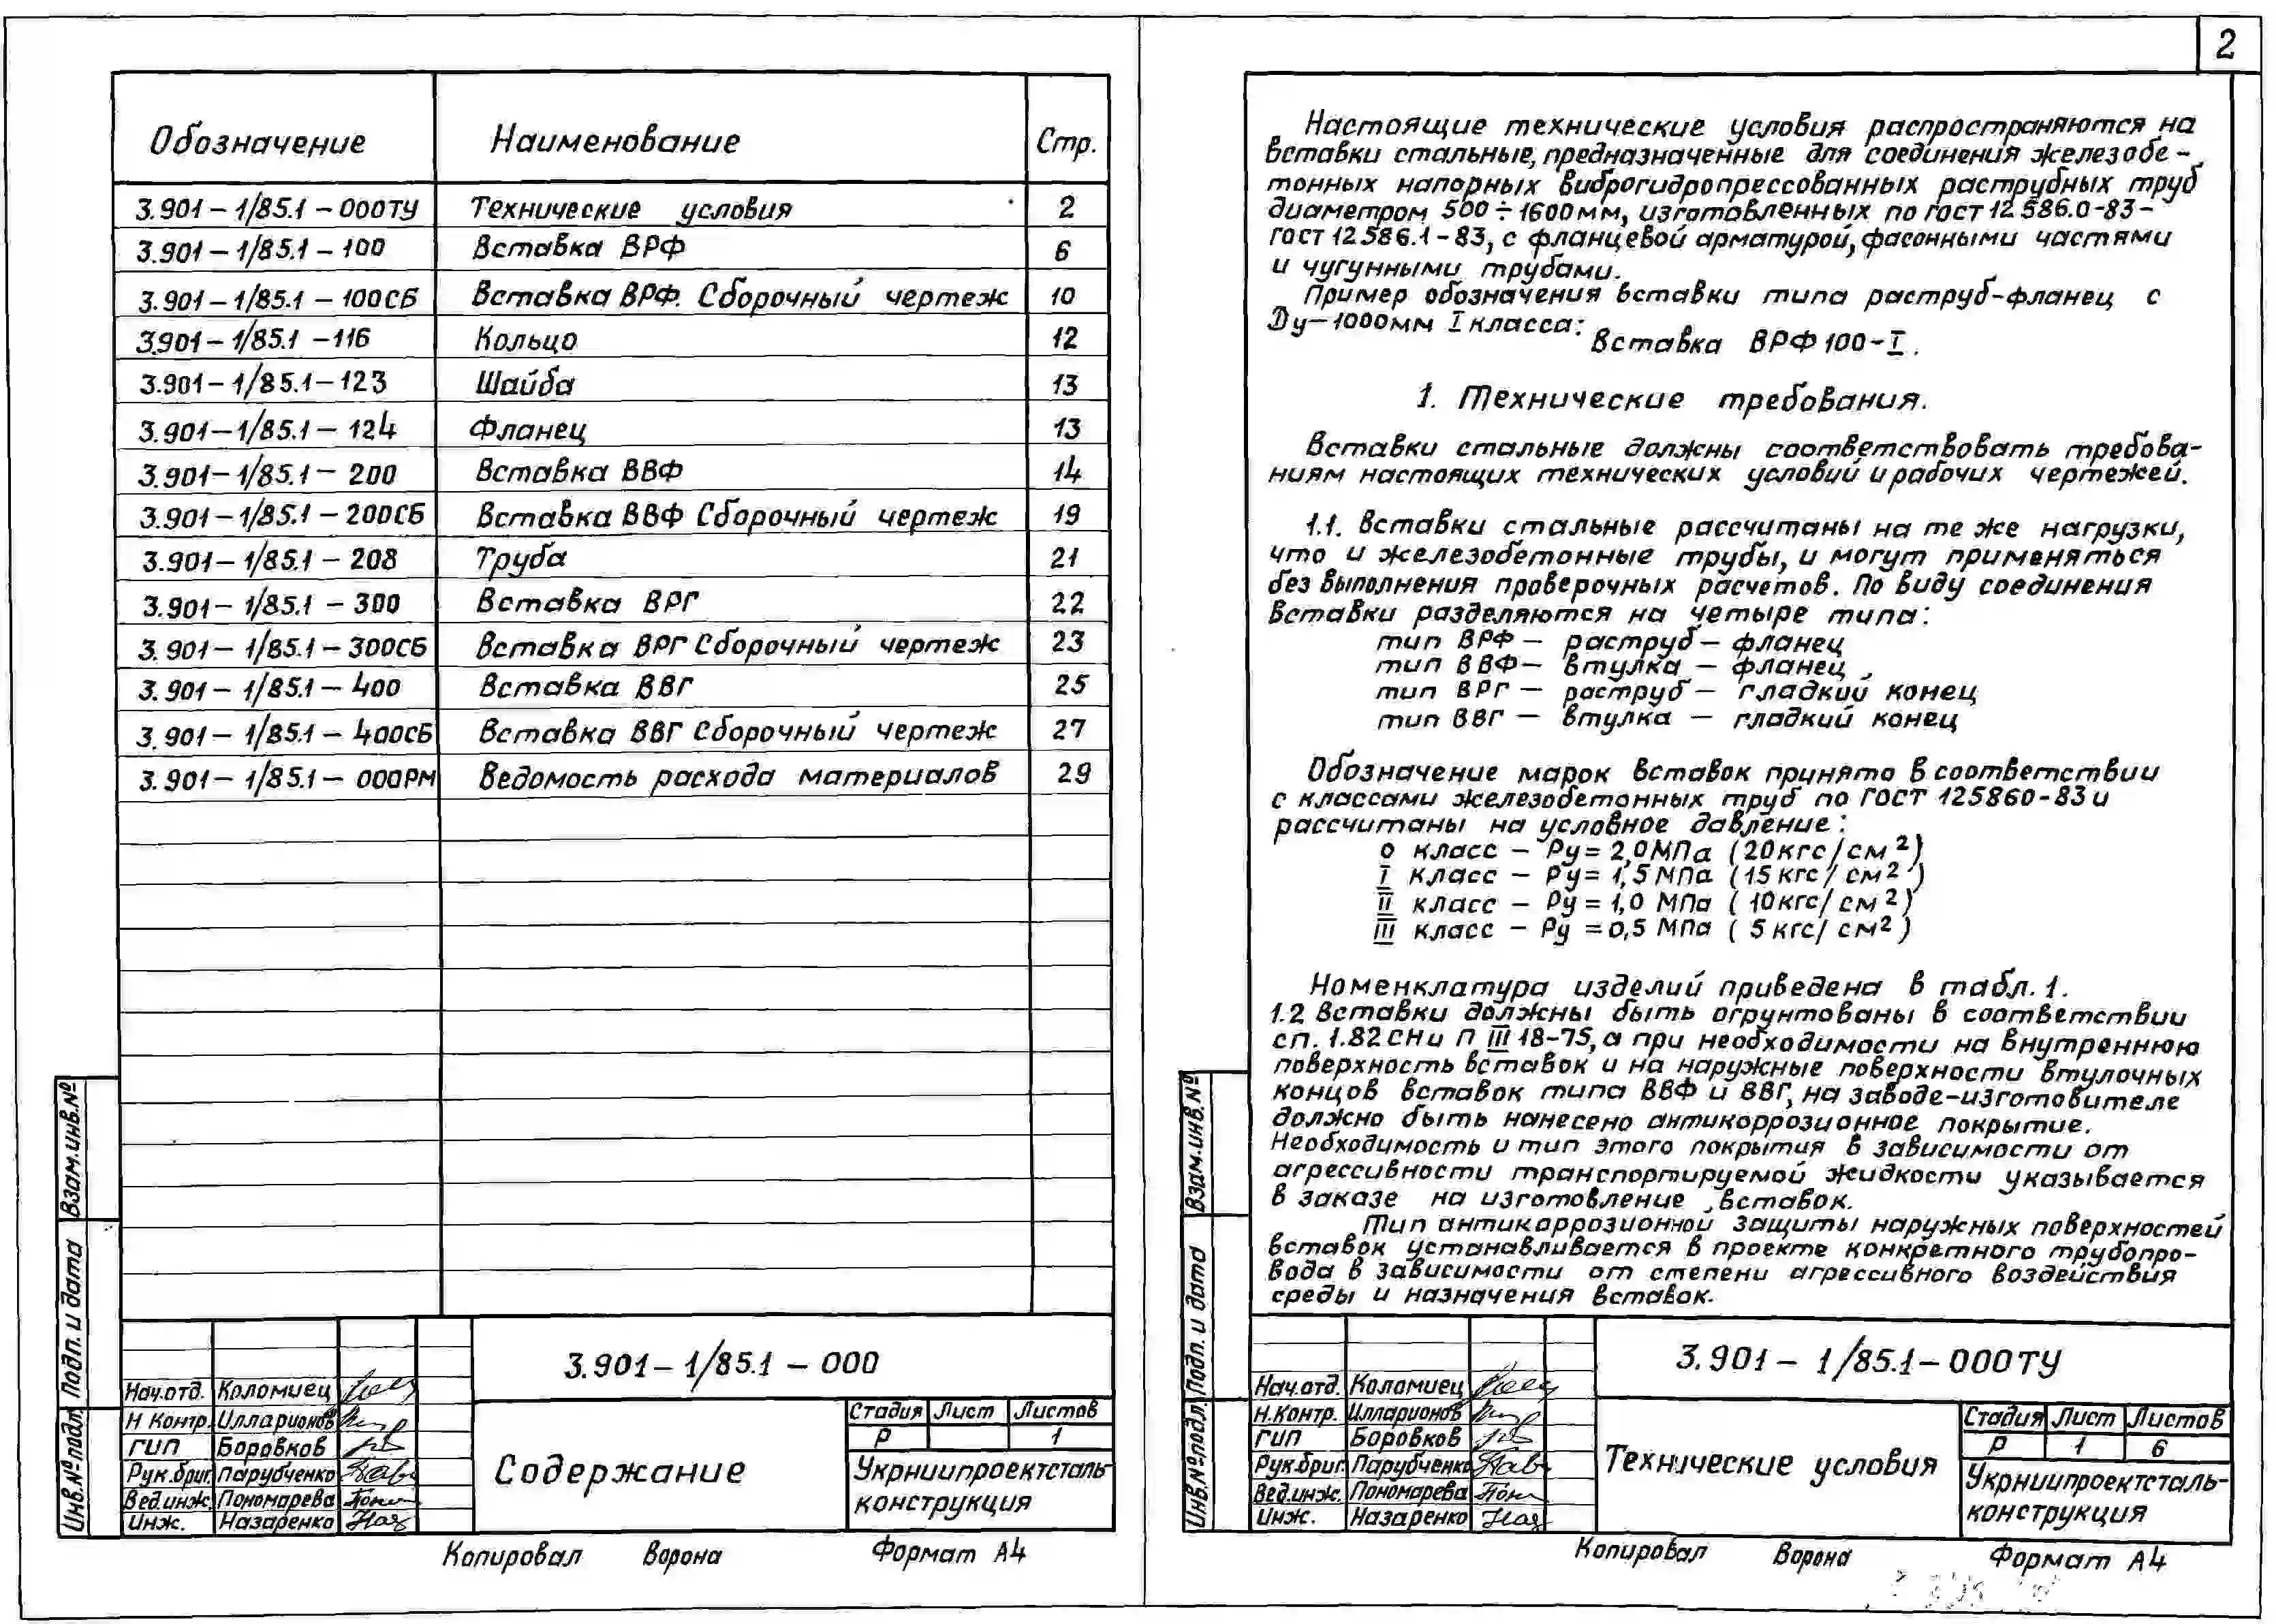 Обозначение Наименование Стр.
3.901-1/85.1-000ТУ Технические условия 2
3.901-1/85.1-100 Вставка ВРФ 6
3.901-1/85.1-100СБ Вставка ВРФ. Сборочный чертеж 10
3.901-1/85.1-116 Кольцо 12
3.901-1/85.1-123 Шайба 13
3.901-1/85.1-124 Фланец 13
3.901-1/85.1-200 Вставка ВВФ 14
3.901-1/85.1-200СБ Вставка ВВФ Сборочный чертеж 19
3.901-1/85.1-208 Труба 21
3.901-1/85.1-300 Вставка ВРГ 22
3.901-1/85.1-300СБ Вставка ВРГ Сборочный чертеж 23
3.901-1/85.1-400 Вставка ВВГ 25
3.901-1/85.1-400СБ Вставка ВВГ Сборочный чертеж 27
3.901-1/85.1-000РМ Ведомость расхода материалов 29
Взам.инв.№
Подп. и дата
Инв.№ подл.
3.901-1/85.1-000
Нач.отд. Коломиец
Н Контр. Илларионов
ГИП Боровков
Рук.бриг. Парубченко
Вед.инж. Пономарева
Инж. Назаренко
Содержание
Стадия Лист Листов
Р 1
Укрниипроектсталь-
конструкция
Копировал Ворона Формат А4
2
Настоящие технические условия распространяются на
вставки стальные, предназначенные для соединения железобе-
тонных напорных виброгидропрессованных раструбных труб
диаметром 500÷1600мм, изготовленных по гост 12586.0-83-
гост 12586.1-83, с фланцевой арматурой, фасонными частями
и чугунными трубами.
Пример обозначения вставки типа раструб-фланец с
Ду-1000мм I класса:
Вставка ВРФ 100-I.
1. Технические требования.
Вставки стальные должны соответствовать требова-
ниям настоящих технических условий и рабочих чертежей.
1.1. Вставки стальные рассчитаны на те же нагрузки,
что и железобетонные трубы, и могут применяться
без выполнения проверочных расчетов. По виду соединения
вставки разделяются на четыре типа:
тип ВРФ - раструб - фланец
тип ВВФ - втулка - фланец
тип ВРГ - раструб - гладкий конец
тип ВВГ - втулка - гладкий конец
Обозначение марок вставок принято в соответствии
с классами железобетонных труб по ГОСТ 125860-83 и
рассчитаны на условное давление:
0 класс - Ру=2,0МПа (20кгс/см²)
I класс - Ру=1,5МПа (15кгс/см²)
II класс - Ру=1,0 МПа (10кгс/см²)
III класс - Ру=0,5 МПа (5кгс/см²)
Номенклатура изделий приведена в табл.1.
1.2 Вставки должны быть огрунтованы в соответствии
сп. 1.82 СНи П III 18-75, а при необходимости на внутреннюю
поверхность вставок и на наружные поверхности втулочных
концов вставок типа ВВФ и ВВГ, на заводе-изготовителе
должно быть нанесено антикоррозионное покрытие.
Необходимость и тип этого покрытия в зависимости от
агрессивности транспортируемой жидкости указывается
в заказе на изготовление вставок.
Тип антикоррозионной защиты наружных поверхностей
вставок устанавливается в проекте конкретного трубопро-
вода в зависимости от степени агрессивного воздействия
среды и назначения вставок.
Взам.инв.№
Подп. и дата
Инв.№ подл.
3.901-1/85.1-000ТУ
Нач.отд. Коломиец
Н.Контр. Илларионов
ГИП Боровков
Рук.бриг. Парубченко
Вед.инж. Пономарева
Инж. Назаренко
Технические условия
Стадия Лист Листов
Р 1 6
Укрниипроектсталь-
конструкция
Копировал Ворона Формат А4